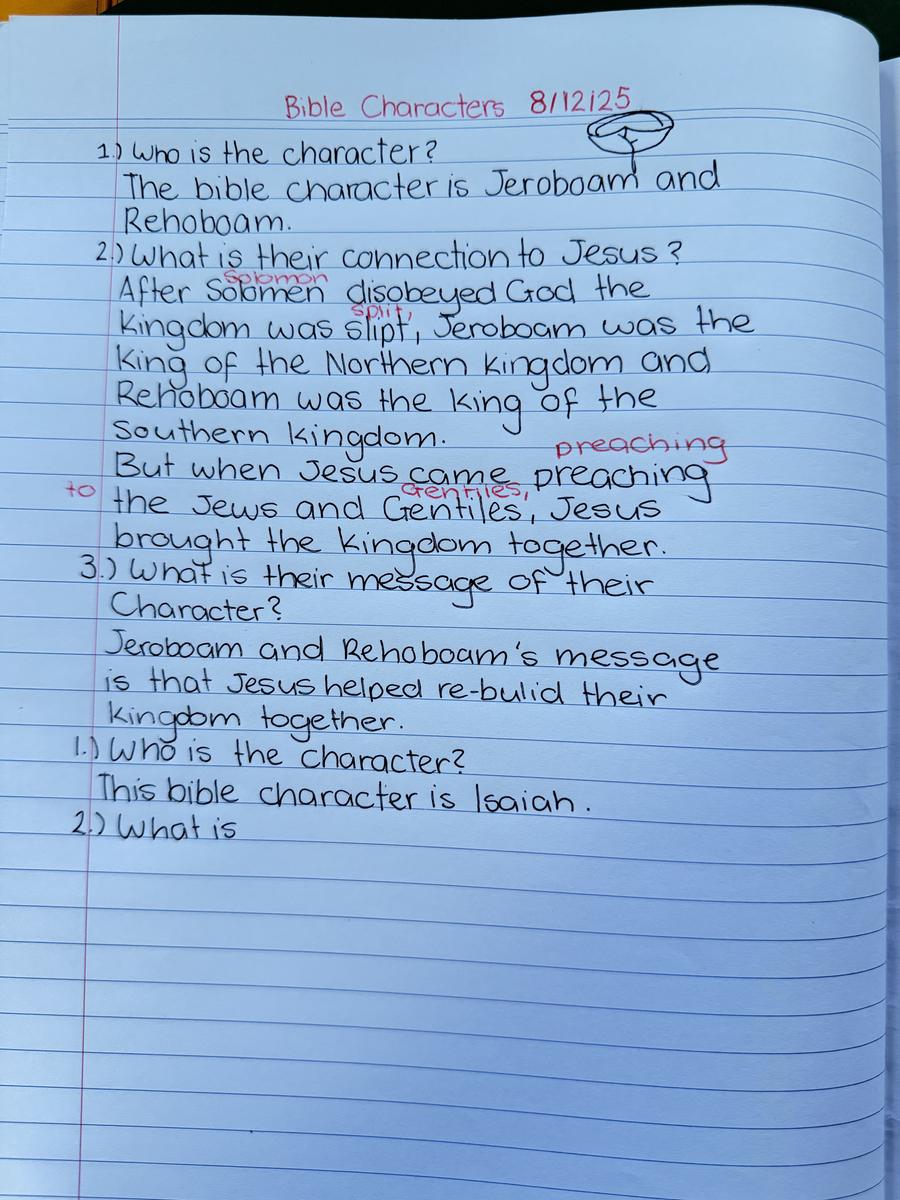 Bible Characters 8/12/25
1.) Who is the character?
The bible character is Jeroboam and
Rehoboam.
2.) What is their connection to Jesus?
Solomon
After Solomen disobeyed God the
split,
kingdom was slipt, Jeroboam was the
king of the Northern kingdom and
Rehoboam was the king of the
Southern kingdom.
preaching
But when Jesus came preaching
to Gentiles,
the Jews and Gentiles, Jesus
brought the kingdom together.
3.) What is their message of their
Character?
Jeroboam and Rehoboam's message
is that Jesus helped re-bulid their
kingdom together.
1.) Who is the character?
This bible character is Isaiah.
2.) What is